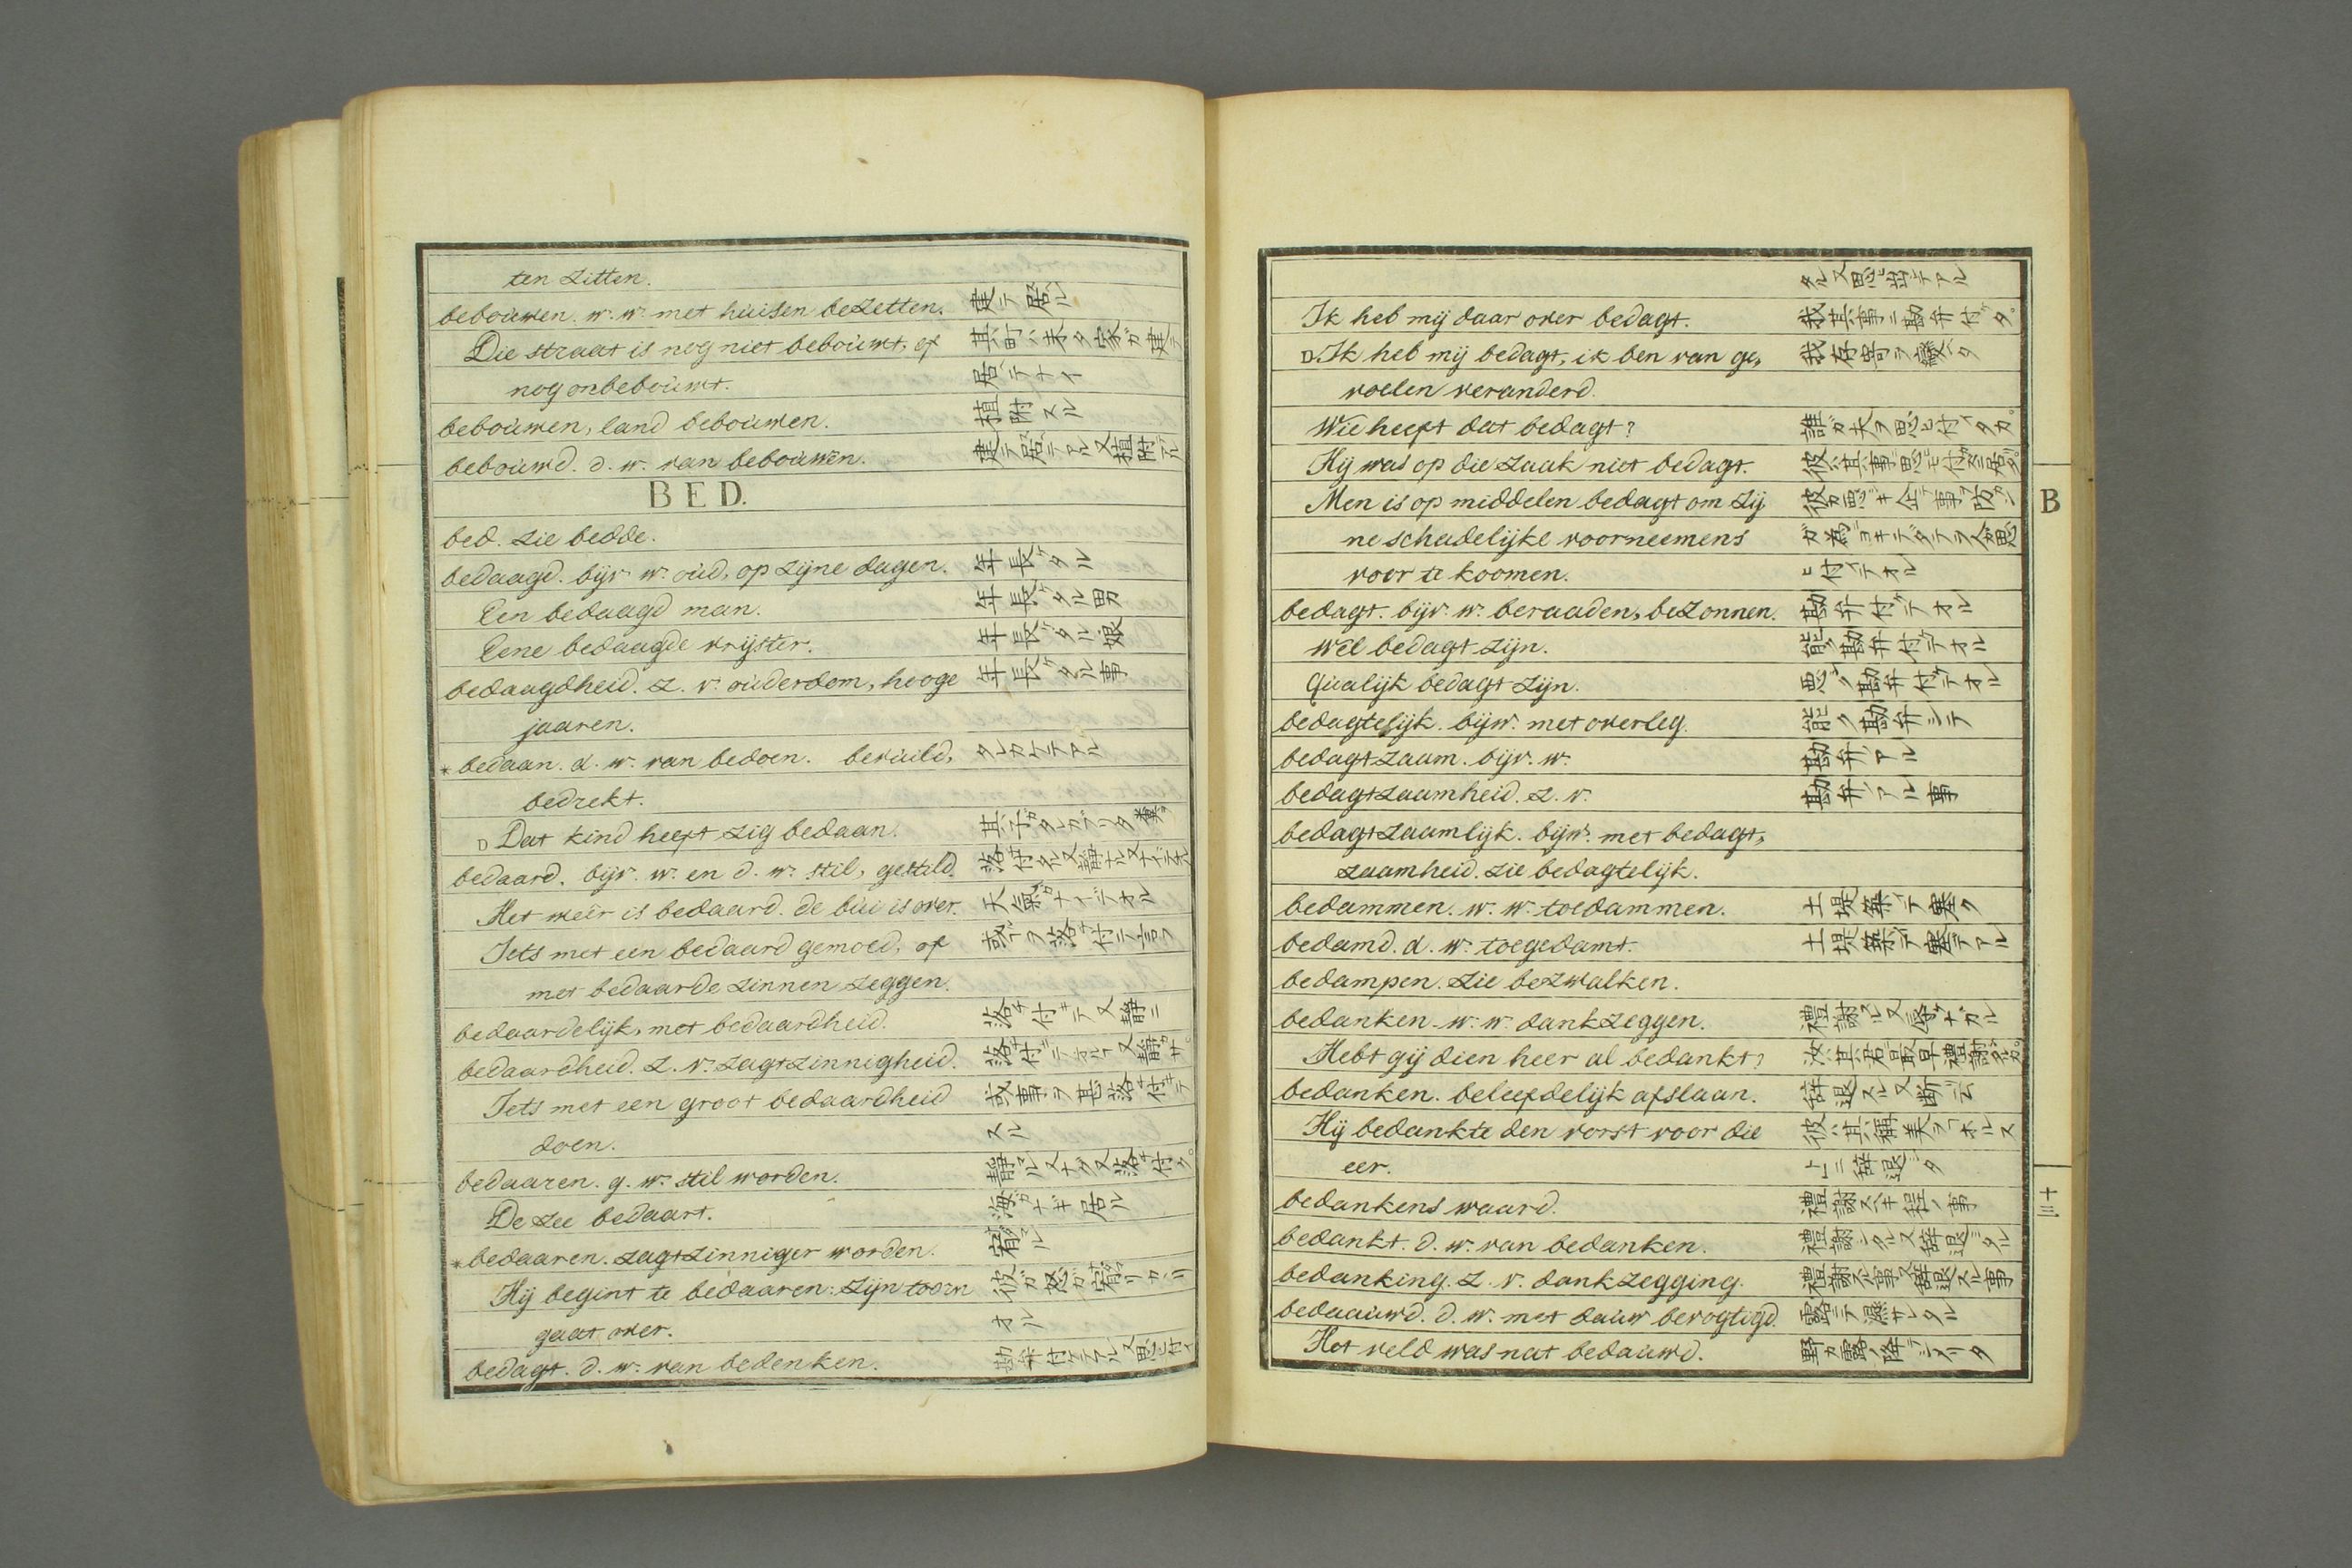 ten zitten.
bebouwen. w. w. met huisen bezetten. 建テ居ル
Die straat is nog niet bebouwt, of 其町ハ未タ家ガ建テ
nog onbebouwt. 居テナイ
bebouwen, land bebouwen. 植附スル
bebouwd. d. w. van bebouwen. 建テ居テアル又植附テアル
BED.
bed. zie bedde.
bedaagd. bijv. w. oud, op zijne dagen. 年長ケタル
Een bedaagd man. 年長ケタル男
Eene bedaagde vrijster. 年長ケタル娘
bedaagdheid. z. v. ouderdom, hooge 年長ケタル事
jaaren.
* bedaan. d. w. van bedoen. bevuild, タレカケテアル
bedrekt.
D Dat kind heeft zig bedaan. 其子ガタレカブリタ
bedaard. bijv. w. en d. w. stil, gestild.
Het weêr is bedaard. de bui is over. 天氣ガナイデオル
Iets met een bedaard gemoed, of 或ヿヲ落付テ言フ
met bedaarde zinnen zeggen.
bedaardelijk, met bedaardheid. 落チ付キテ又静ニ
bedaardheid. z. v. zagtzinnigheid.
Iets met een groot bedaardheid 或事ヲ甚落付キテ
doen. スル
bedaaren. g. w. stil worden. 静マル又ナグ又落付ク
De zee bedaart. 海ガナギ居ル
* bedaaren. zagtzinniger worden.
Hij begint te bedaaren: zijn toorn
gaat over. オル
bedagt. d. w. van bedenken. 勘弁付ケテアル又思ヒ付イ
タル又思ヒ出シテアル
Ik heb mij daar over bedagt. 我其事ニ勘弁付ケタ
D. Ik heb mij bedagt, ik ben van ge, 我存寄ヲ變ヘタ
voelen veranderd.
Wie heeft dat bedagt? 誰ガ夫ヲ思ヒ付イタカ
Hij was op die zaak niet bedagt.
Men is op middelen bedagt om zij,
B
ne schadelijke voorneemens
voor te koomen. ヒ付イテオル
bedagt. bijv. w. beraaden, bezonnen. 勘弁付ケテオル
wel bedagt zijn. 能ク勘弁付ケテオル
qualijk bedagt zijn. 悪ク勘弁付ケテオル
bedagtelijk. bijw. met overleg. 能ク勘弁シテ
bedagtzaam. bijv. w. 勘弁ノアル
bedagtzaamheid. z. v. 勘弁ノアル事
bedagtzaamlijk. bijw. met bedagt,
zaamheid. zie bedagtelijk.
bedammen. w. w. toedammen. 土堤築テ塞ク
bedamd. d. w. toegedamt. 土堤築テ塞テアル
bedampen. zie bezwalken.
bedanken w. w. dankzeggen.
Hebt gij dien heer al bedankt? 汝ハ其君ニ最早禮謝シタルカ
bedanken. beleefdelijk afslaan. 辞退スル又断ヲ云
Hij bedankte den vorst voor die
eer. 上ニ辞退シタ
bedankens waard. 禮謝スベキ程ノ事
bedankt. d. w. van bedanken. 禮謝シタル又辞退シタル
十三
bedanking. z. v. dankzegging. 禮謝スル事又辞退スル事
bedaauwd. d. w. met dauw bevogtigd. 露ニテ濕サレタル
Het veld was nat bedauwd.